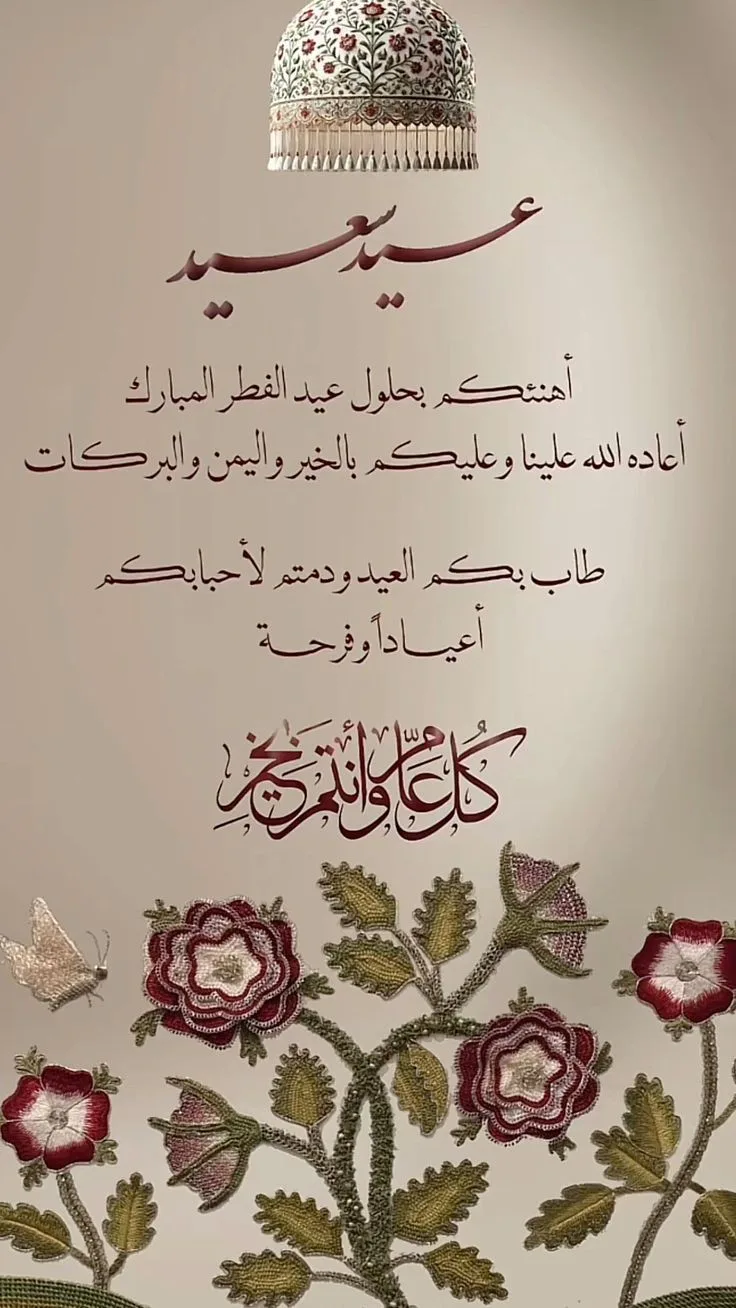 عيد سعيد
أهنئكم بحلول عيد الفطر المبارك
أعاده الله علينا وعليكم بالخير واليمن والبركات
طاب بكم العيد ودمتم لأحبابكم
أعياداً وفرحة
كُل عَامٍّ وأنتم بخيرٍ